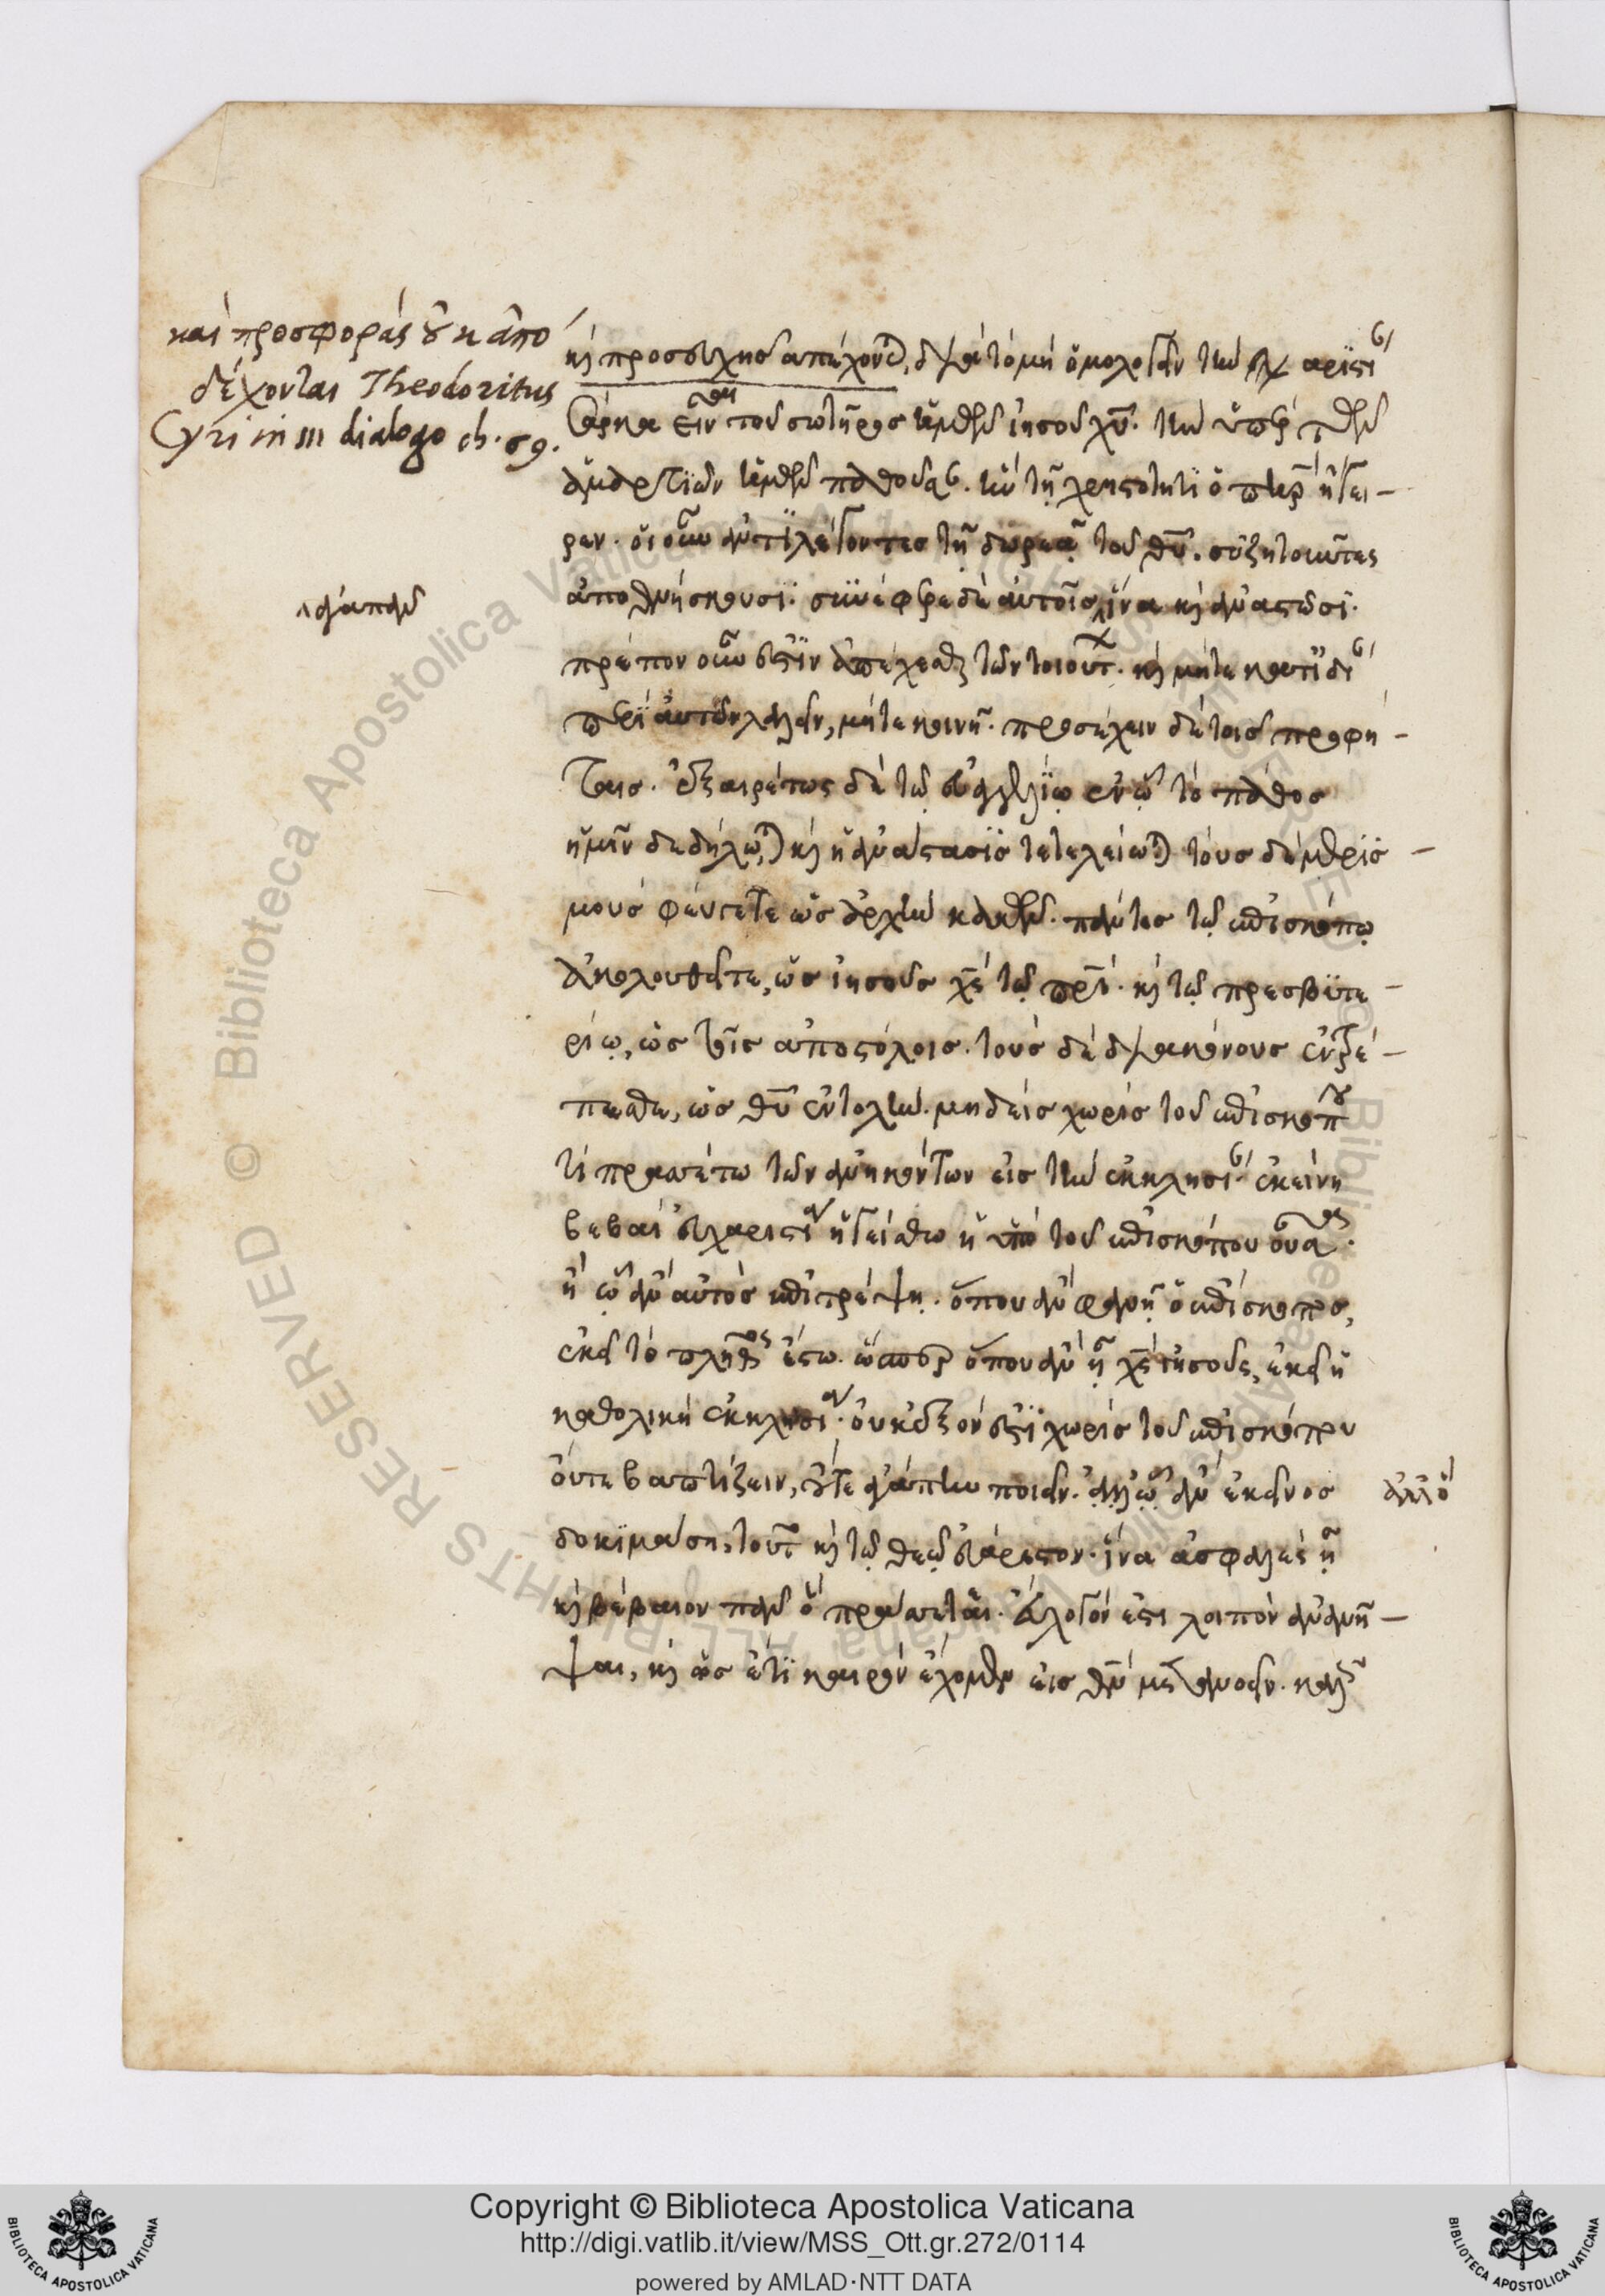 καὶ προσφορὰς οὐκ ἀπο
δέχονται Theodoritus
Cyri in III dialogo ch. 59.
καὶ προσευχῆς ἀπέχονται, διὰ τὸ μὴ ὁμολογεῖν τὴν εὐχαριστίαν
σάρκα εἶναι τοῦ σωτῆρος ἡμῶν ἰησοῦ χυ. τὴν ὑπὲρ τῶν
ἁμαρτιῶν ἡμῶν παθοῦσαν. ἣν τῇ χρηστότητι ὁ πατὴρ ἤγει-
ρεν. οἱ οὖν ἀντιλέγοντες τῇ δωρεᾷ τοῦ θυ. συζητοῦντες
ἀποθνήσκουσι. συνέφερε δὲ αὐτοῖς ἵνα καὶ ἀναστῶσι.
ἀγαπᾶν
πρέπον οὖν ἐστὶν ἀπέχεσθαι τῶν τοιούτων. καὶ μήτε κατιδίαν
περὶ αὐτῶν λαλεῖν, μήτε κοινῇ. προσέχειν δὲ τοῖς προφή-
ταις. ἐξαιρέτως δὲ τῷ εὐαγγελίῳ ἐν ᾧ τὸ πάθος
ἡμῖν δεδήλωται καὶ ἡ ἀνάστασις τετελείωται τοὺς δὲ μερισ-
μοὺς φεύγετε ὡς ἀρχὴν κακῶν. πάντες τῷ ἐπισκόπῳ
ἀκολουθεῖτε, ὡς ἰησοῦς χς τῷ πρι. καὶ τῷ πρεσβυτε-
ρίῳ, ὡς τοῖς ἀποστόλοις. τοὺς δὲ διακόνους ἐντρέ-
πεσθε, ὡς θυ ἐντολήν. μηδεὶς χωρὶς τοῦ ἐπισκόπου
τὶ πρασσέτω τῶν ἀνηκόντων εἰς τὴν ἐκκλησίαν. ἐκείνη
βεβαία εὐχαριστία ἡγείσθω ἡ ὑπὸ τοῦ ἐπισκόπου οὖσα.
ἢ ᾧ ἂν αὐτὸς ἐπιτρέψῃ. ὅπου ἂν φανῇ ὁ ἐπίσκοπος,
ἐκεῖ τὸ πλῆθος ἔστω. ὥσπερ ὅπου ἂν ᾖ χς ἰησοῦς, ἐκεῖ ἡ
καθολικὴ ἐκκλησία. οὐκ ἐξόν ἐστὶ χωρὶς τοῦ ἐπισκόπου
οὔτε βαπτίζειν, οὔτε ἀγάπην ποιεῖν. ἀλλ' ᾧ ἂν ἐκεῖνος
ἀλλ' ὃ
δοκιμάσῃ, τοῦτο καὶ τῷ θεῷ εὐάρεστον. ἵνα ἀσφαλὲς ᾖ
καὶ βέβαιον πᾶν ὃ πράσσεται. εὔλογόν ἐστι λοιπὸν ἀνανῆ-
ψαι, καὶ ὡς ἔτι καιρὸν ἔχομεν εἰς θν μετανοεῖν. καλῶς
Copyright © Biblioteca Apostolica Vaticana
http://digi.vatlib.it/view/MSS_Ott.gr.272/0114
powered by AMLAD·NTT DATA